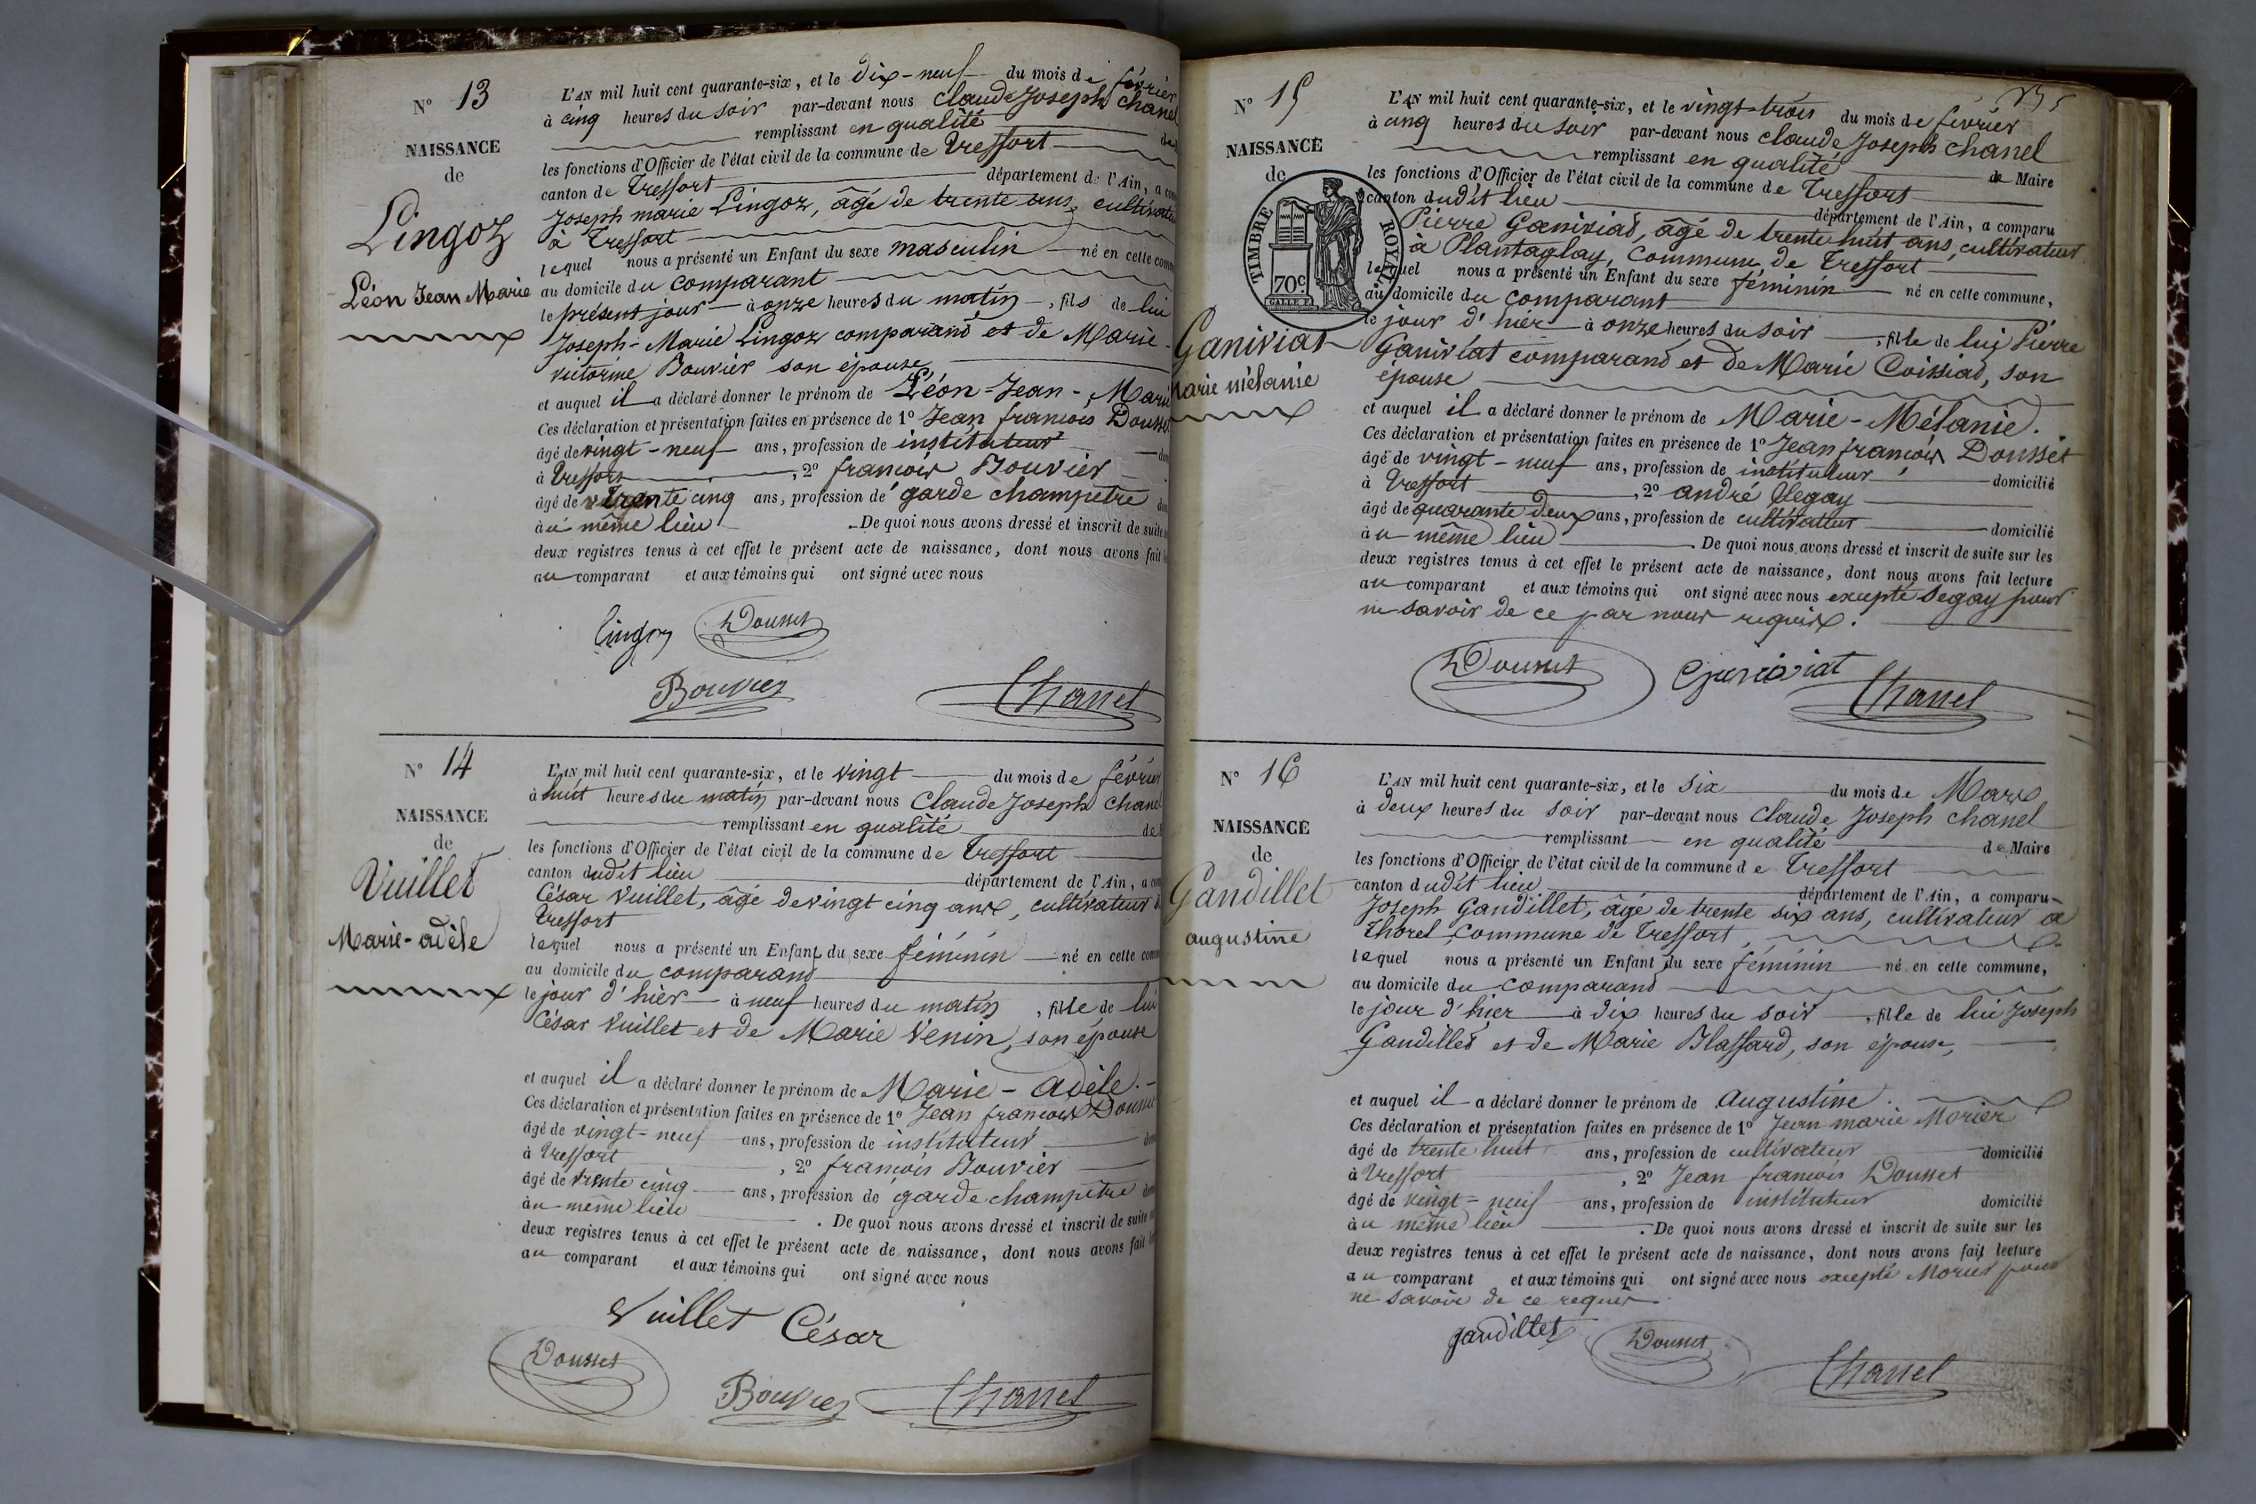 N° 13
NAISSANCE
de
Lingoz
Léon Jean Marie
L'AN mil huit cent quarante-six, et le dix-neuf du mois de février
à cinq heures du soir par-devant nous Claude Joseph Chanel
remplissant en qualité de
les fonctions d'Officier de l'état civil de la commune de Treffort
canton de Treffort département de l'Ain, a com
Joseph marie Lingoz, âgé de trente ans, cultivate
à Treffort
lequel nous a présenté un Enfant du sexe masculin né en cette comm
au domicile du comparant
le présent jour à onze heures du matin, fils de lui
Joseph-Marie Lingoz comparant et de Marie-
victorine Bouvier son épouse
et auquel il a déclaré donner le prénom de Léon-Jean-Marie
Ces déclaration et présentation faites en présence de 1° Jean francois Dousse
âgé de vingt-neuf ans, profession de instituteur dom
à Treffort, 2° francois Bouvier
âgé de trente cinq ans, profession de garde champêtre dom
à u même lieu. De quoi nous avons dressé et inscrit de suite
deux registres tenus à cet effet le présent acte de naissance, dont nous avons fait
au comparant et aux témoins qui ont signé avec nous
Lingoz Dousset
Bouvier Chanel
N° 14
NAISSANCE
de
Vuillet
Marie-adèle
L'AN mil huit cent quarante-six, et le vingt du mois de février
à huit heures du matin par-devant nous Claude Joseph Chanel
remplissant en qualité de
les fonctions d'Officier de l'état civil de la commune de Treffort
canton dudit lieu département de l'Ain, a com
César Vuillet, âgé de vingt cinq ans, cultivateur à
Treffort
lequel nous a présenté un Enfant du sexe féminin né en cette comm
au domicile du comparant
le jour d'hier à neuf heures du matin, fille de lui
César Vuillet et de Marie Venin, son épouse
et auquel il a déclaré donner le prénom de Marie-adèle.
Ces déclaration et présentation faites en présence de 1° Jean francois Dousset
âgé de vingt-neuf ans, profession de instituteur dom
à Treffort, 2° francois Bouvier
âgé de trente cinq ans, profession de garde champêtre dom
à u même lieu. De quoi nous avons dressé et inscrit de suite
deux registres tenus à cet effet le présent acte de naissance, dont nous avons fait
au comparant et aux témoins qui ont signé avec nous
Vuillet César
Dousset
Bouvier Chanel
N° 15
NAISSANCE
de
TIMBRE ROYAL
70c
Ganiviat
marie mélanie
L'AN mil huit cent quarante-six, et le vingt-trois du mois de février
à cinq heures du soir par-devant nous Claude Joseph Chanel
remplissant en qualité de Maire
les fonctions d'Officier de l'état civil de la commune de Treffort
canton dudit lieu département de l'Ain, a comparu
Pierre Ganiviat, âgé de trente huit ans, cultivateur
à Plantaglay, Commune de Treffort
lequel nous a présenté un Enfant du sexe féminin né en cette commune,
au domicile du comparant
le jour d'hier à onze heures du soir, fille de lui Pierre
Ganiviat comparant et de Marie Coissiad, son
épouse
et auquel il a déclaré donner le prénom de Marie-Mélanie.
Ces déclaration et présentation faites en présence de 1° Jean francois Dousset
âgé de vingt-neuf ans, profession de instituteur domicilié
à Treffort, 2° andré Segay
âgé de quarante deux ans, profession de cultivateur domicilié
à u même lieu. De quoi nous avons dressé et inscrit de suite sur les
deux registres tenus à cet effet le présent acte de naissance, dont nous avons fait lecture
au comparant et aux témoins qui ont signé avec nous excepté Segay pour
ne savoir de ce par nous requis.
Dousset Ganiviat
Chanel
N° 16
NAISSANCE
de
Gandillet
augustine
L'AN mil huit cent quarante-six, et le six du mois de Mars
à deux heures du soir par-devant nous Claude Joseph Chanel
remplissant en qualité de Maire
les fonctions d'Officier de l'état civil de la commune de Treffort
canton dudit lieu département de l'Ain, a comparu
Joseph Gandillet, âgé de trente six ans, cultivateur à
Thorel Commune de Treffort,
lequel nous a présenté un Enfant du sexe féminin né en cette commune,
au domicile du comparant
le jour d'hier à dix heures du soir, fille de lui Joseph
Gandillet et de Marie Blaffard, son épouse,
et auquel il a déclaré donner le prénom de Augustine.
Ces déclaration et présentation faites en présence de 1° Jean marie Morier
âgé de trente huit ans, profession de cultivateur domicilié
à Treffort, 2° Jean francois Dousset
âgé de vingt-neuf ans, profession de instituteur domicilié
à u même lieu. De quoi nous avons dressé et inscrit de suite sur les
deux registres tenus à cet effet le présent acte de naissance, dont nous avons fait lecture
au comparant et aux témoins qui ont signé avec nous excepté Morier pour
ne savoir de ce requis.
gandillet Dousset
Chanel